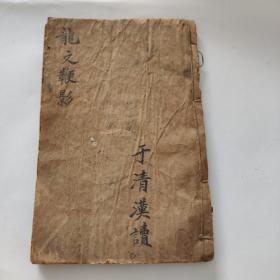 龍文鞭影
于清漢讀